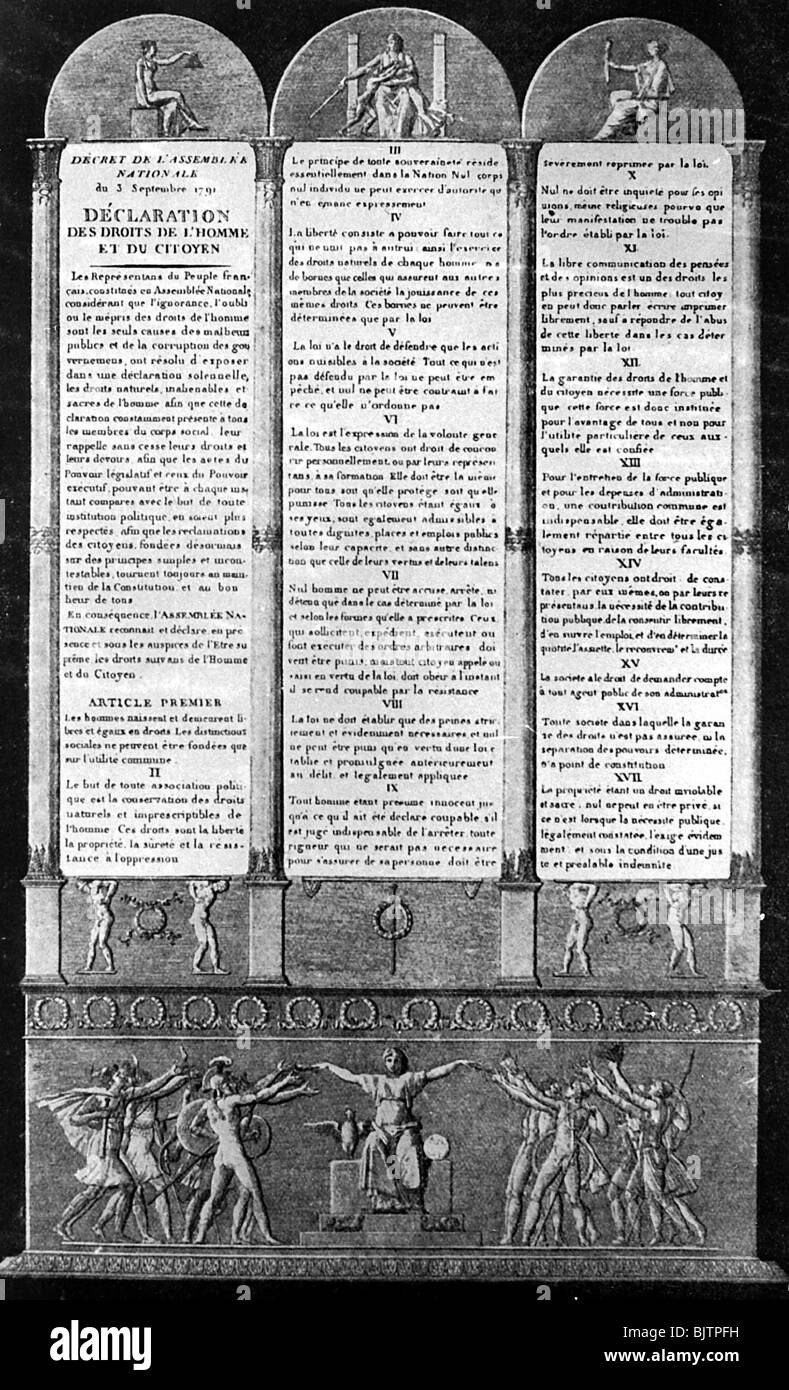 DECRET DE L'ASSEMBLÉE
NATIONALE
du 3 Septembre 1791
DÉCLARATION
DES DROITS DE L'HOMME
ET DU CITOYEN
Les Représentans du Peuple fran-
çais, constitués en Assemblée Nationale
considérant que l'ignorance, l'oubli
ou le mépris des droits de l'homme
sont les seuls causes des malheurs
publics et de la corruption des gou
vernemens, ont résolu d'exposer
dans une déclaration solennelle,
les droits naturels, inalienables et
sacres de l'homme afin que cette de
claration constamment présente a tous
les membres du corps social, leur
rappelle sans cesse leurs droits et
leurs devoirs, afin que les actes du
Pouvoir législatif et ceux du Pouvoir
exécutif, pouvant être à chaque ins
tant compares avec le but de toute
institution politique, en soient plus
respectés, afin que les reclamations
des citoyens, fondées désormais
sur des principes simples et incon-
testables, tournent toujours au main
tien de la Constitution, et au bon
heur de tous
En conséquence, l'ASSEMBLÉE NA-
TIONALE reconnait et déclare, en pré
sence et sous les auspices de l'Etre su
prème, les droits suivans de l'Homme
et du Citoyen.
ARTICLE PREMIER
Les hommes naissent et demeurent li-
bres et égaux en droits. Les distinctions
sociales ne peuvent être fondées que
sur l'utilité commune.
II
Le but de toute association politi-
que est la conservation des droits
naturels et imprescriptibles de
l'homme Ces droits sont la liberté
la propriété, la sûreté et la résis-
tance à l'oppression
III
Le principe de toute souveraineté réside
essentiellement dans la Nation Nul corps
nul individu ne peut exercer d'autorite qu
n'en emane expressement
IV
La liberté consiste a pouvoir faire tout ce
qui ne nuit pas à autrui ainsi l'exercice
des droits naturels de chaque homme n a
de bornes que celles qui assurent aux autres
membres de la société la jouissance de ces
mêmes droits Ces bornes ne peuvent être
déterminées que par la loi
V
La loi n'a le droit de défendre que les acti
ons nuisibles à la société Tout ce qui n'est
pas défendu par le loi ne peut être em
pêché, et nul ne peut être contraint à fai
re ce qu'elle n'ordonne pas
VI
La loi est l'expression de la volonte gene
rale. Tous les citoyens ont droit de concou
rir personnellement, ou par leurs represen
tans, à sa formation Elle doit être la même
pour tous, soit qu'elle protège soit qu'elle
punisse Tous les citoyens étant égaux à
ses yeux, sont egalement admissibles à
toutes dignites, places et emplois publics
selon leur capacite, et sans autre distinc
tion que celle de leurs vertus et de leurs talens
VII
Nul homme ne peut être accuse, arrête, ni
détenu que dans le cas déterminé par la loi
et selon les formes qu'elle a prescrites Ceux
qui sollicitent, expédient, exécutent ou
font executer des ordres arbitraires doi
vent être punis; mais tout citoyen appele ou
saisi en vertu de la loi, doit obeir à l'instant
il se rend coupable par la résistance
VIII
La loi ne doit établir que des peines stric
tement et évidemment nécessaires, et nul
ne peut être puni qu'en vertu d'une loi e
tablie et promulguée antérieurement
au délit, et légalement appliquée
IX
Tout homme étant presume innocent jus
qu'à ce qu'il ait été déclare coupable, s'il
est jugé indispensable de l'arrêter, toute
rigueur qui ne serait pas necessaire
pour s'assurer de sa personne doit être
severement reprimee par la loi.
X
Nul ne doit être inquiete pour ses opi
nions, même religieuses pourvo que
leur manifestation ne trouble pas
l'ordre établi par la loi.
XI
La libre communication des pensées
et des opinions est un des droits les
plus precieux de l'homme tout citoy
en peut donc parler écrire imprimer
librement, sauf a répondre de l'abus
de cette liberte dans les cas déter
minés par la loi
XII.
La garantie des droits de l'homme et
du citoyen nécessite une force publi-
que cette force est donc instituée
pour l'avantage de tous et non pour
l'utilite particuliere de ceux aux-
quels elle est confiée
XIII
Pour l'entretien de la force publique
et pour les depenses d'administrati-
on, une contribution commune est
indispensable, elle doit être éga-
lement répartie entre tous les ci
toyens en raison de leurs facultés.
XIV
Tous les citoyens ont droit de cons-
tater, par eux mêmes, ou par leurs re
présentans, la nécessité de la contribu
tion publique, de la consentir librement,
d'en suivre l'emploi, et d'en déterminer la
quotite l'assiette, le recouvremt et la durée
XV
La societe a le droit de demander compte
à tout agent public de son administraton
XVI.
Toute societe dans laquelle la garan
tie des droits n'est pas assurée, ni la
séparation des pouvoirs determinée,
n'a point de constitution
XVII.
La propriété étant un droit inviolable
et sacre, nul ne peut en être privé, si
ce n'est lorsque la nécessite publique,
légalement constatee, l'exige évidem
ment, et sous la condition d'une jus
te et prealable indemnite
alamy
Image ID: BJTPFH
www.alamy.com